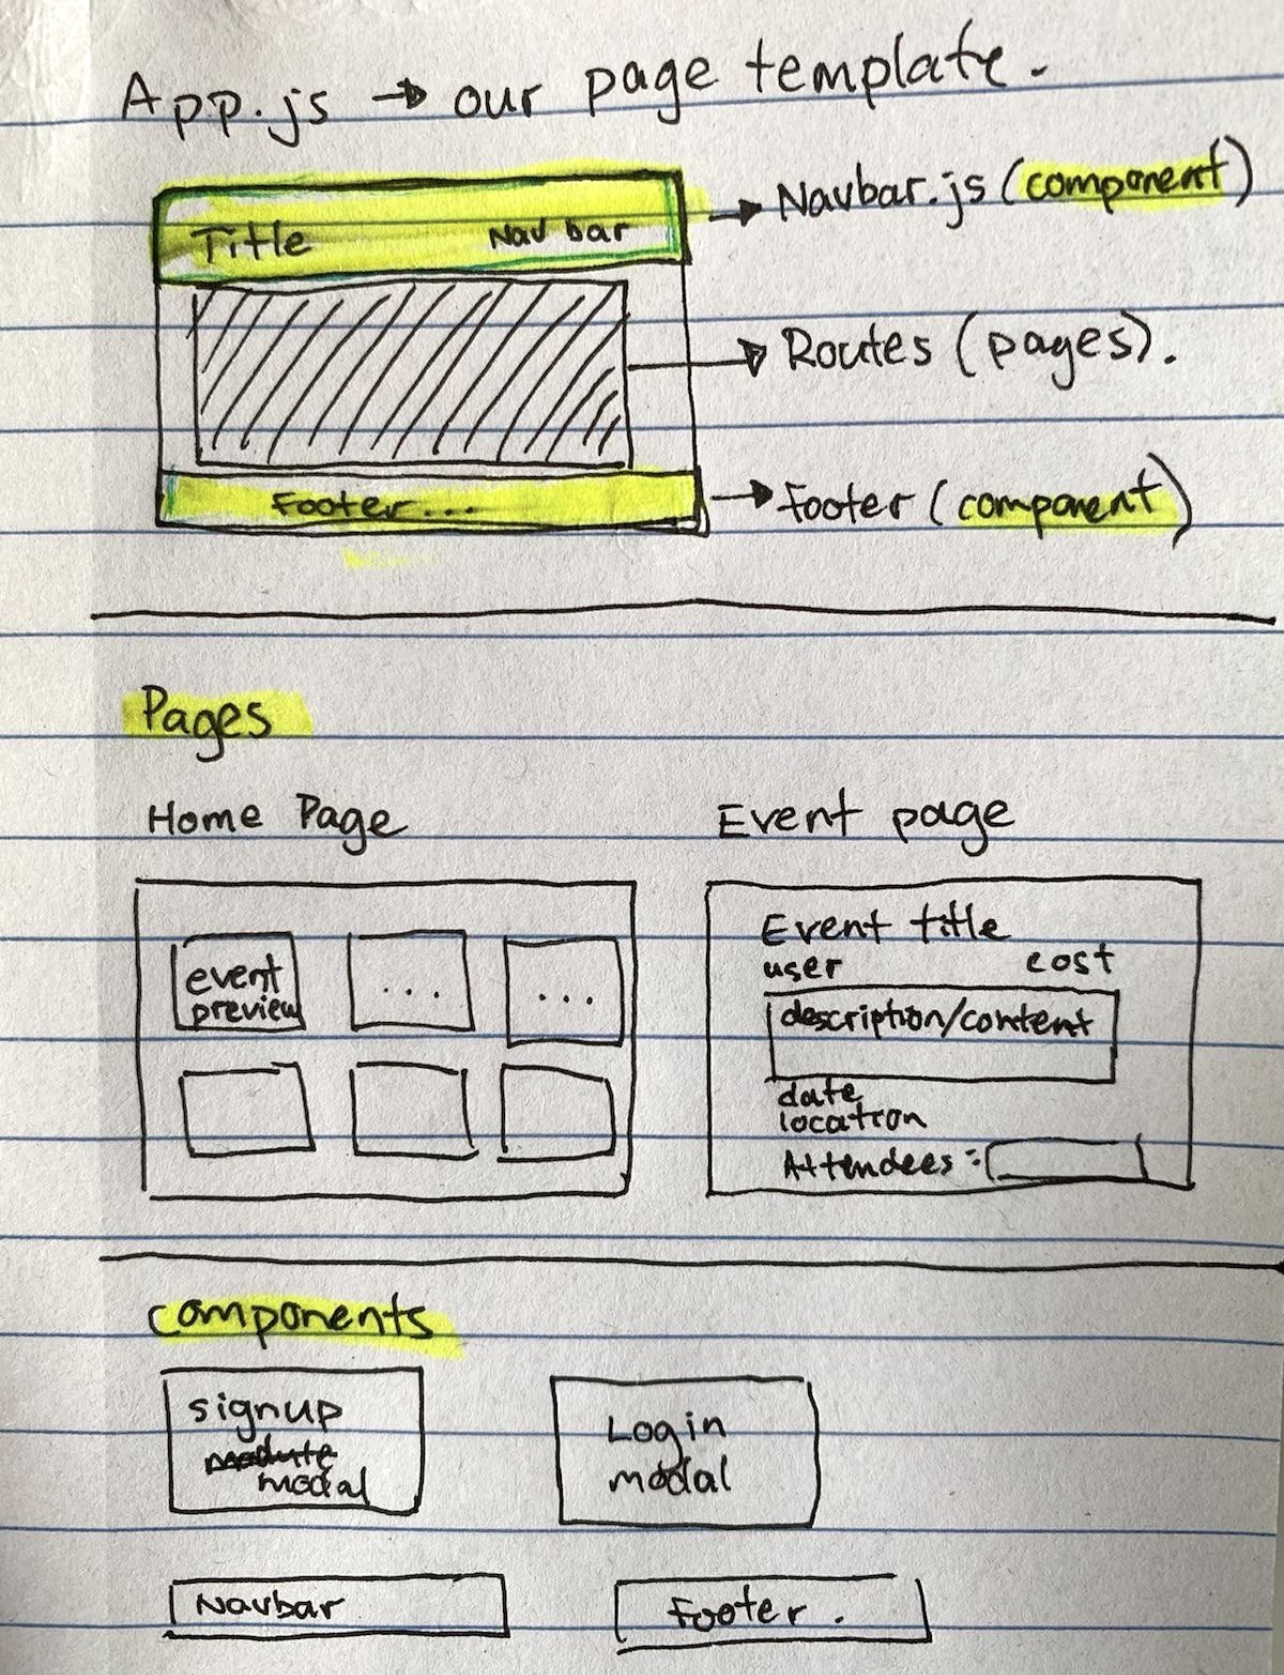 App.js → our page template.
Title Nav bar
→ Navbar.js (component)
→ Routes (pages).
Footer...
→ footer (component)
Pages
Home Page
Event page
event
preview
...
...
Event title
user cost
description/content
date
location
Attendees:
Components
signup
module
modal
Login
modal
Navbar
Footer.